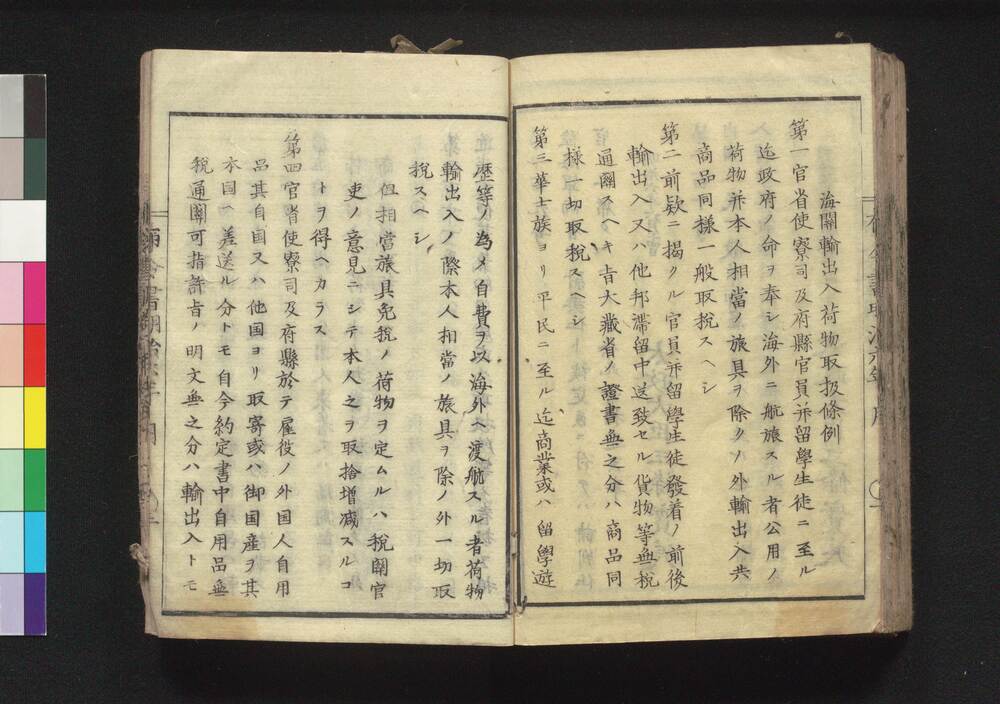 海關輸出入荷物取扱條例
第一官省使寮司及府縣官員并留學生徒ニ至ル
迄政府ノ命ヲ奉シ海外ニ航旅スル者公用ノ
荷物并本人相當ノ旅具ヲ除クノ外輸出入共
商品同樣一般取税スヘシ
第二前欵ニ揭クル官員并留學生徒發着ノ前後
輸出入又ハ他邦滯留中送致セル貨物等無税
通關スヘキ旨大藏省ノ證書無之分ハ商品同
樣一切取税スヘシ
第三華士族ヨリ平民ニ至ル迄商業或ハ留學遊
歷等ノ為メ自費ヲ以海外ヘ渡航スル者荷物
輸出入ノ際本人相當ノ旅具ヲ除ノ外一切取
税スヘシ
但相當旅具免税ノ荷物ヲ定ムルハ税關官
吏ノ意見ニシテ本人之ヲ取捨增减スルコ
トヲ得ヘカラス
第四官省使寮司及府縣於テ雇役ノ外国人自用
品其自国又ハ他国ヨリ取寄或ハ御国産ヲ其
本国ヘ差送ル分トモ自今約定書中自用品無
税通關可指許旨ノ明文無之分ハ輸出入トモ